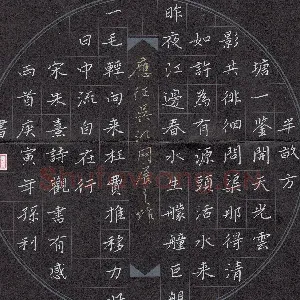 半畝方
塘一鑒開天光雲
影共徘徊問渠那得清
如許為有源頭活水来
昨夜江邊春水生艨艟巨
一毛輕向来枉費推移力此
日中流自在行
宋朱熹詩觀書有感
兩首庚寅年孫利
書